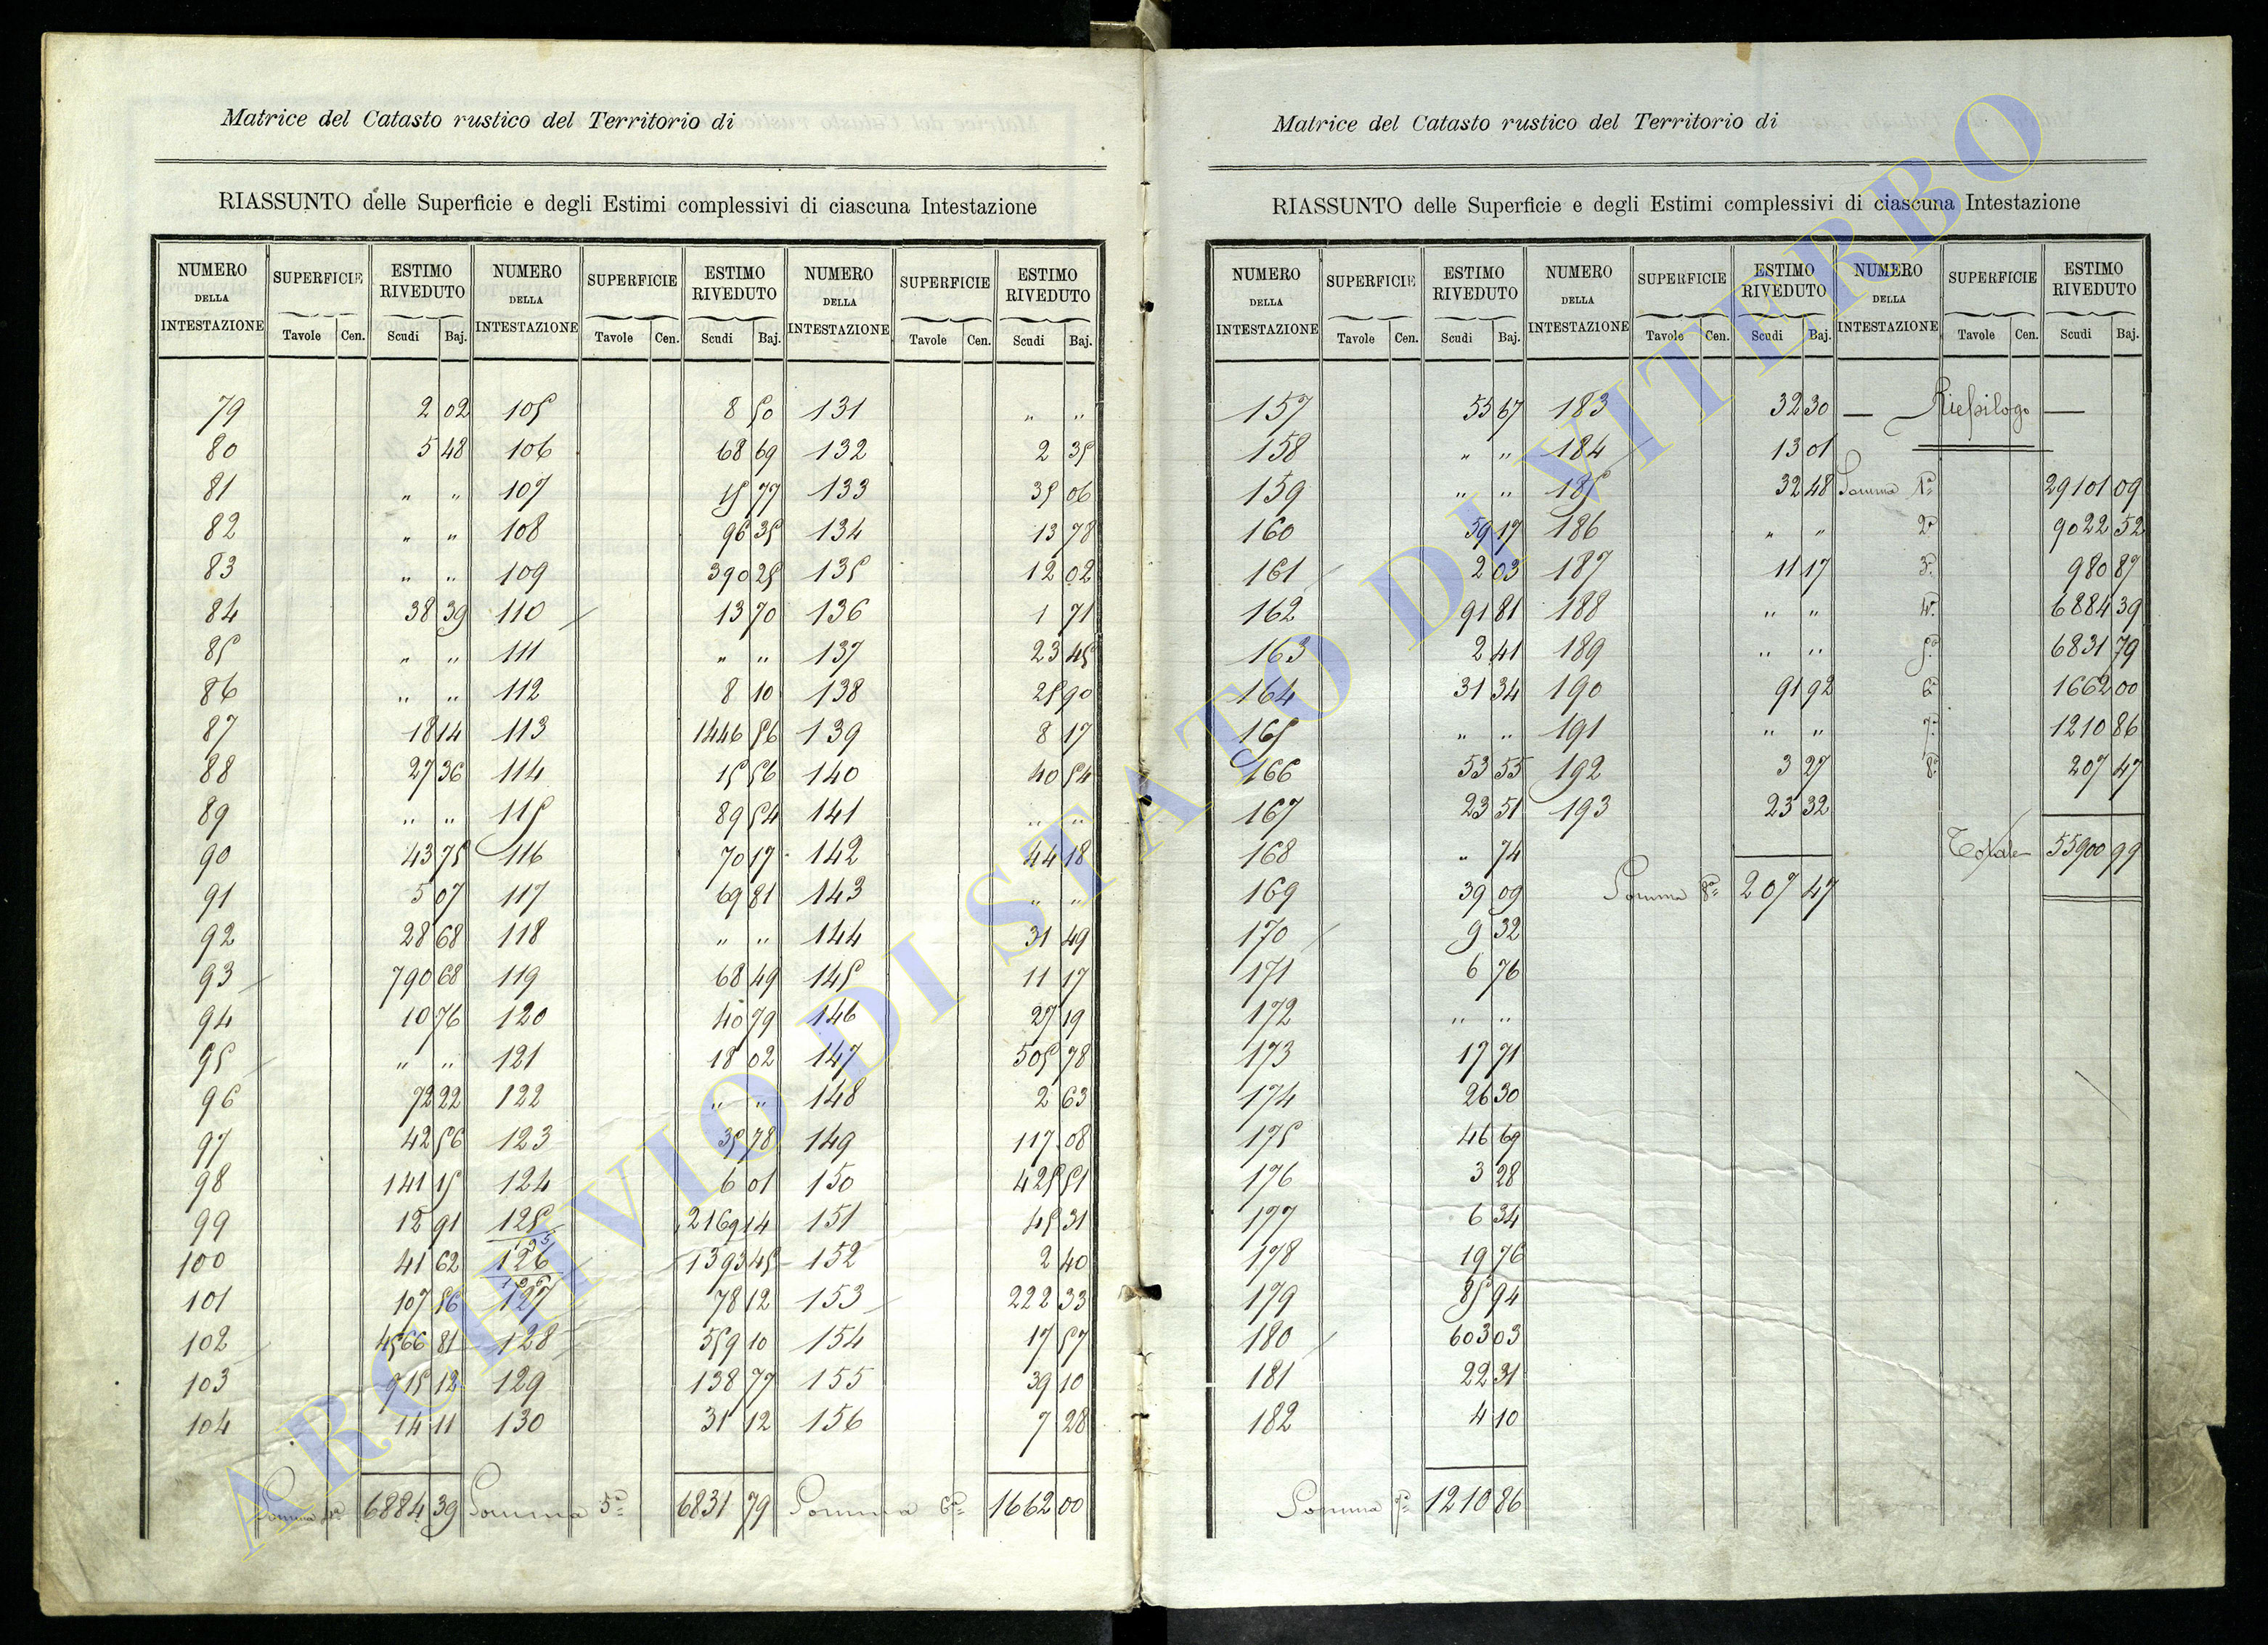 Matrice del Catasto rustico del Territorio di
RIASSUNTO delle Superficie e degli Estimi complessivi di ciascuna Intestazione
NUMERO DELLA INTESTAZIONE SUPERFICIE ESTIMO RIVEDUTO NUMERO DELLA INTESTAZIONE SUPERFICIE ESTIMO RIVEDUTO NUMERO DELLA INTESTAZIONE SUPERFICIE ESTIMO RIVEDUTO
Tavole Cen. Scudi Baj. Tavole Cen. Scudi Baj. Tavole Cen. Scudi Baj.
79 2 02 105 8 50 131 " "
80 5 48 106 68 69 132 2 35
81 " " 107 15 77 133 35 06
82 " " 108 96 35 134 13 78
83 " " 109 390 25 135 12 02
84 38 39 110 13 70 136 1 71
85 " " 111 " " 137 23 45
86 " " 112 8 10 138 25 90
87 18 14 113 1446 56 139 8 17
88 27 36 114 15 56 140 40 54
89 " " 115 89 54 141 " "
90 43 75 116 70 17 142 44 18
91 5 07 117 69 81 143 " "
92 28 68 118 " " 144 31 49
93 790 68 119 68 49 145 11 17
94 10 76 120 40 79 146 27 19
95 " " 121 18 02 147 505 78
96 72 22 122 " " 148 2 63
97 42 56 123 35 78 149 117 08
98 141 15 124 6 01 150 425 51
99 12 91 125 2169 14 151 45 31
100 41 62 126 1393 45 152 2 40
101 107 56 127 78 12 153 222 33
102 4566 81 128 559 10 154 17 57
103 915 12 129 138 77 155 39 10
104 14 11 130 31 12 156 7 28
Somma 4ª 6884 39 Somma 5ª 6831 79 Somma 6ª 1662 00
Matrice del Catasto rustico del Territorio di
RIASSUNTO delle Superficie e degli Estimi complessivi di ciascuna Intestazione
NUMERO DELLA INTESTAZIONE SUPERFICIE ESTIMO RIVEDUTO NUMERO DELLA INTESTAZIONE SUPERFICIE ESTIMO RIVEDUTO NUMERO DELLA INTESTAZIONE SUPERFICIE ESTIMO RIVEDUTO
Tavole Cen. Scudi Baj. Tavole Cen. Scudi Baj. Tavole Cen. Scudi Baj.
157 55 67 183 32 30 — Riepilogo —
158 " " 184 13 01
159 " " 185 32 48 Somma 1ª 29101 09
160 59 17 186 " " 2ª 9022 52
161 2 03 187 11 17 3ª 980 87
162 91 81 188 " " 4ª 6884 39
163 2 41 189 " " 5ª 6831 79
164 31 34 190 91 92 6ª 1662 00
165 " " 191 " " 7ª 1210 86
166 53 55 192 3 27 8ª 207 47
167 23 51 193 23 32
168 " 74 Totale 55900 99
169 39 09 Somma 8ª 207 47
170 9 32
171 6 76
172 " "
173 17 71
174 26 30
175 46 69
176 3 28
177 6 34
178 19 76
179 85 94
180 603 03
181 22 31
182 4 10
Somma 7ª 1210 86
ARCHIVIO DI STATO DI VITERBO